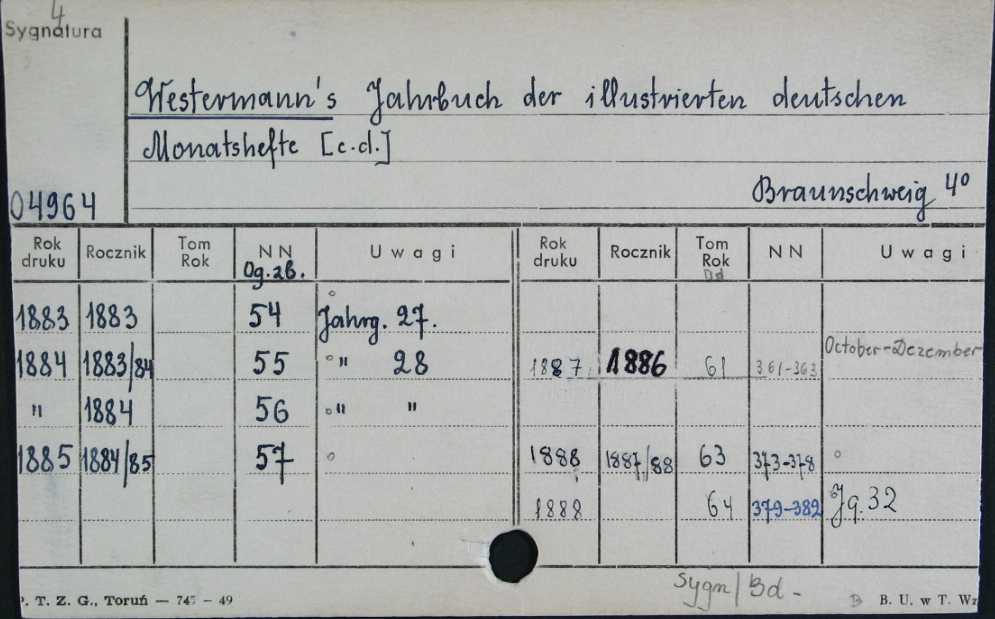 4
Sygnatura
Westermann's Jahrbuch der illustrierten deutschen
Monatshefte [c.d.]
04964
Braunschweig 4°
Rok druku Rocznik Tom Rok NN Og.zb. Uwagi Rok druku Rocznik Tom Rok Bd NN Uwagi
1883 1883 54 ° Jahrg. 27.
1884 1883/84 55 ° " 28 1887 1886 61 361-363 October-Dezember
" 1884 56 ° " "
1885 1884/85 57 ° 1888 1887/88 63 373-378 °
1888 64 379-382 ° Jg. 32
Sygn/Bd -
P. T. Z. G., Toruń — 745 - 49 B B. U. w T. Wz